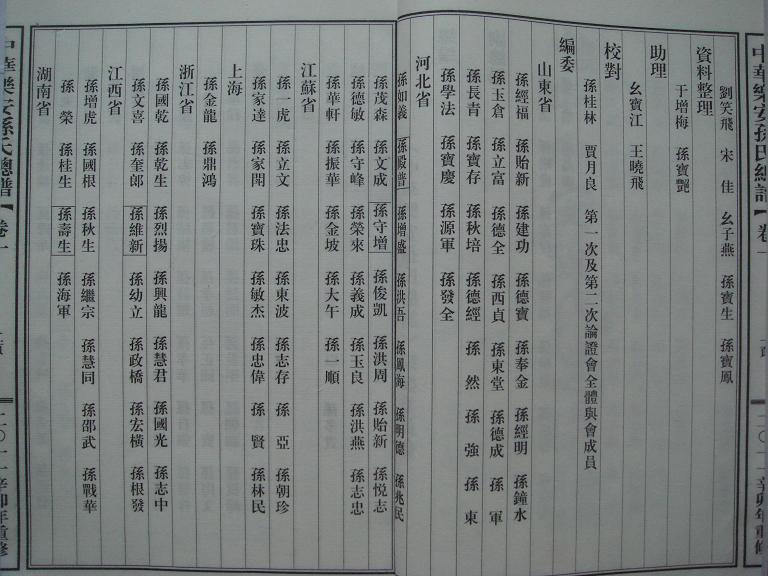 中華樂安孫氏總譜
卷一
二〇一一辛卯年重修
劉笑飛 宋佳 幺子燕 孫寶生 孫寶鳳
資料整理
于增梅 孫寶艷
助理
幺寶江 王曉飛
校對
孫桂林 賈月良 第一次及第二次論證會全體與會成員
編委
山東省
孫經福 孫貽新 孫建功 孫德寶 孫奉金 孫經明 孫鐘水
孫玉倉 孫立富 孫德全 孫西貞 孫東堂 孫德成 孫軍
孫長青 孫寶存 孫秋培 孫德經 孫然 孫強 孫東
孫學法 孫寶慶 孫源軍 孫發全
河北省
孫如義 孫殿普 孫增盛 孫洪吾 孫鳳海 孫明德 孫兆民
孫茂森 孫文成 孫守增 孫俊凱 孫洪周 孫貽新 孫悦志
孫德敏 孫守峰 孫榮來 孫義成 孫玉良 孫洪燕 孫志忠
江蘇省
孫華軒 孫振華 孫金坡 孫大午 孫一順
孫一虎 孫立文 孫法忠 孫東波 孫志存 孫亞 孫朝珍
孫家達 孫家閎 孫寶珠 孫敏杰 孫忠偉 孫賢 孫林民
上海
孫金龍 孫鼎鴻
浙江省
孫國乾 孫乾生 孫烈揚 孫興龍 孫慧君 孫國光 孫志中
孫文喜 孫奎郎 孫維新 孫幼立 孫政橋 孫宏橫 孫根發
江西省
孫增虎 孫國根 孫秋生 孫繼宗 孫慧同 孫邵武 孫戰華
孫榮 孫桂生 孫壽生 孫海軍
湖南省
中華樂安孫氏總譜
卷一
二〇一一辛卯年重修